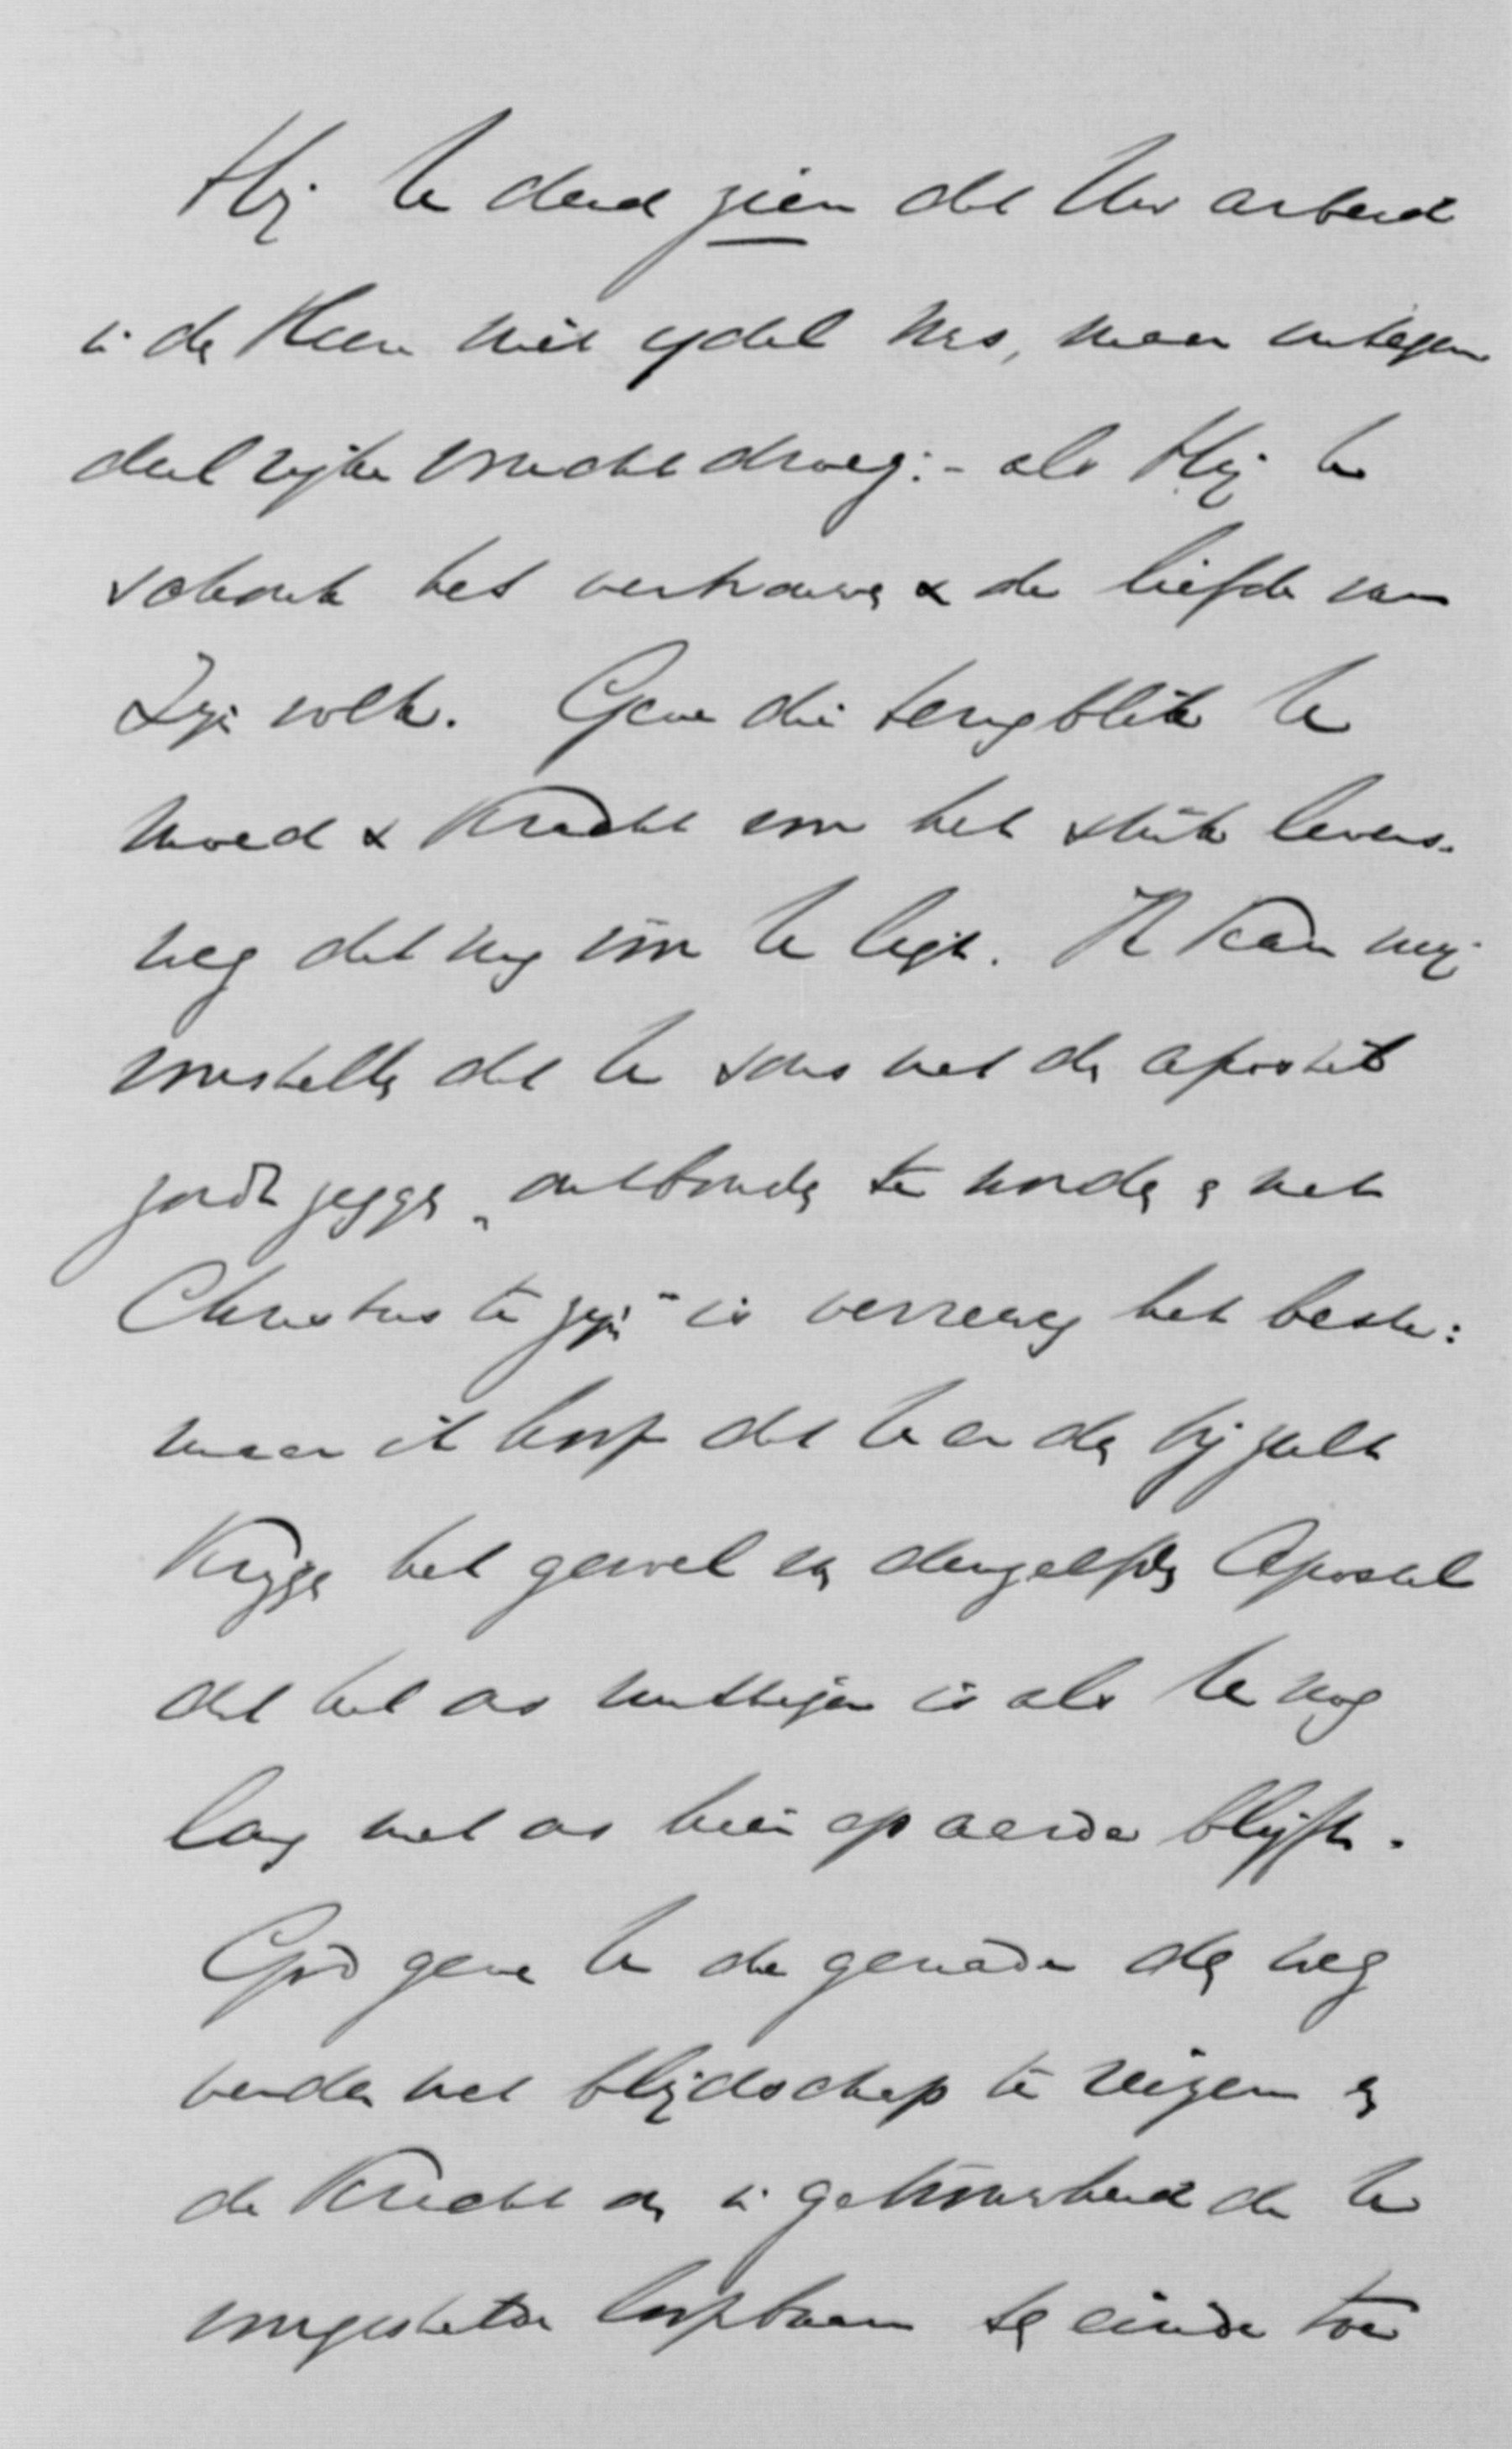 Hij U deed zien dat Uw arbeid
in den Heere niet ydel was, maar integen
deel rijke vrucht droeg: - als Hij U
schonk het vertrouwen & de liefde van
Zijn volk. Geve die terugblik U
moed & kracht voor het stuk levens-
weg dat nog vóór U ligt. Ik kan mij
voorstellen dat U soms met den apostel
zoudt zeggen „ontbonden te worden en met
Christus te zijn" is verreweg het beste:
maar ik hoop dat U er de bij zult
krijgen het gevoel van denzelfden Apostel
dat het ons nuttiger is als U nog
lang met ons hier op aarde blijft.
God geve U de genade den weg
verder met blijdschap te reizen en
de kracht om in gehoorzaamheid de U
voorgestelde loopbaan ten einde toe